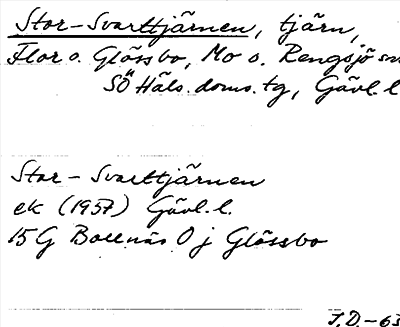 Stor-Svarttjärnen, tjärn,
Flor o. Glössbo, Mo o. Rengsjö sn
SÖ Häls. doms. tg, Gävl. l.
Stor-Svarttjärnen
ek (1957) Gävl. l.
15G Bollnäs 0 j Glössbo
J.D.-63